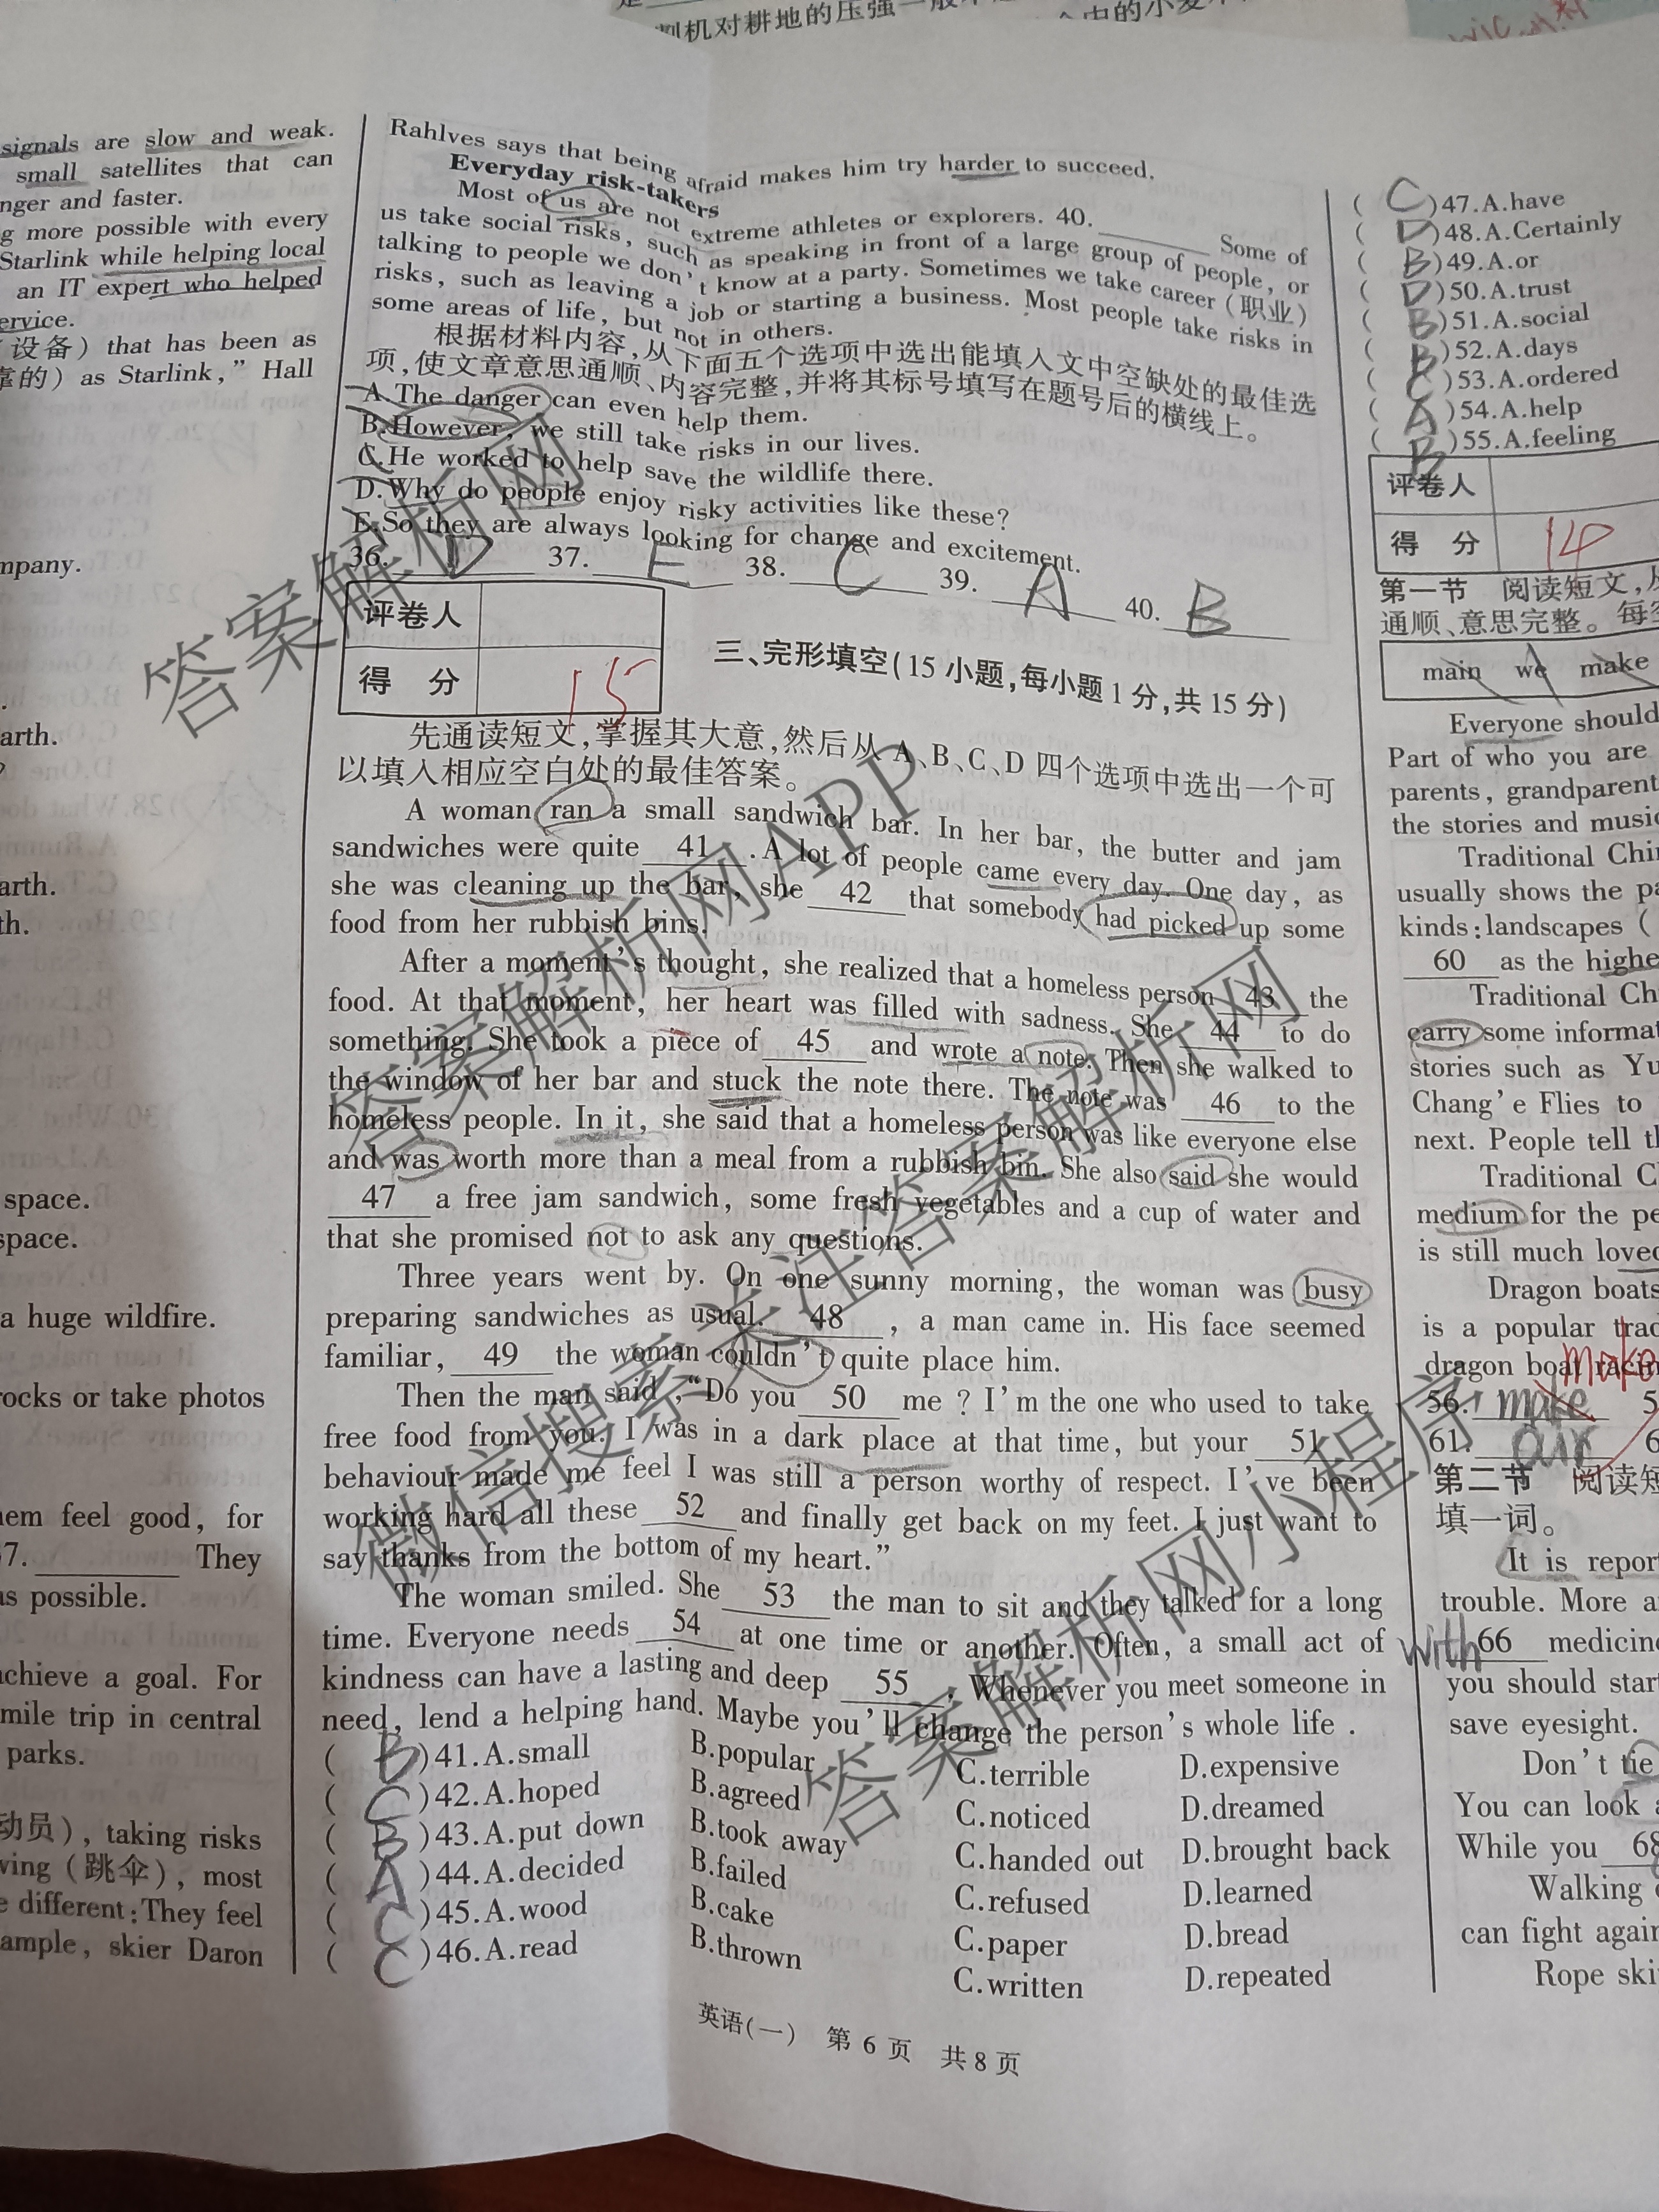 割机对耕地的压强一般
signals are slow and weak.
small satellites that can
nger and faster.
g more possible with every
Starlink while helping local
an IT expert who helped
ervice.
(设备) that has been as
靠的) as Starlink," Hall
mpany.
arth.
?
arth.
th.
space.
space.
a huge wildfire.
rocks or take photos
hem feel good, for
37. ________ They
as possible.
achieve a goal. For
mile trip in central
parks.
动员), taking risks
ving (跳伞), most
e different:They feel
ample, skier Daron
Rahlves says that being afraid makes him try harder to succeed.
Everyday risk-takers
Most of us are not extreme athletes or explorers. 40. ________ Some of
us take social risks, such as speaking in front of a large group of people, or
talking to people we don't know at a party. Sometimes we take career (职业)
risks, such as leaving a job or starting a business. Most people take risks in
some areas of life, but not in others.
根据材料内容,从下面五个选项中选出能填入文中空缺处的最佳选
项,使文章意思通顺、内容完整,并将其标号填写在题号后的横线上。
A.The danger can even help them.
B.However, we still take risks in our lives.
C.He worked to help save the wildlife there.
D.Why do people enjoy risky activities like these?
E.So they are always looking for change and excitement.
36. D 37. E 38. C 39. A 40. B
评卷人
得 分 15
三、完形填空(15 小题,每小题 1 分,共 15 分)
先通读短文,掌握其大意,然后从 A、B、C、D 四个选项中选出一个可
以填入相应空白处的最佳答案。
A woman ran a small sandwich bar. In her bar, the butter and jam
sandwiches were quite 41 . A lot of people came every day. One day, as
she was cleaning up the bar, she 42 that somebody had picked up some
food from her rubbish bins.
After a moment's thought, she realized that a homeless person 43 the
food. At that moment, her heart was filled with sadness. She 44 to do
something. She took a piece of 45 and wrote a note. Then she walked to
the window of her bar and stuck the note there. The note was 46 to the
homeless people. In it, she said that a homeless person was like everyone else
and was worth more than a meal from a rubbish bin. She also said she would
47 a free jam sandwich, some fresh vegetables and a cup of water and
that she promised not to ask any questions.
Three years went by. On one sunny morning, the woman was busy
preparing sandwiches as usual. 48 , a man came in. His face seemed
familiar, 49 the woman couldn't quite place him.
Then the man said ,"Do you 50 me ? I'm the one who used to take
free food from you. I was in a dark place at that time, but your 51
behaviour made me feel I was still a person worthy of respect. I've been
working hard all these 52 and finally get back on my feet. I just want to
say thanks from the bottom of my heart."
The woman smiled. She 53 the man to sit and they talked for a long
time. Everyone needs 54 at one time or another. Often, a small act of
kindness can have a lasting and deep 55 . Whenever you meet someone in
need, lend a helping hand. Maybe you'll change the person's whole life .
( B )41.A.small B.popular C.terrible D.expensive
( C )42.A.hoped B.agreed C.noticed D.dreamed
( B )43.A.put down B.took away C.handed out D.brought back
( A )44.A.decided B.failed C.refused D.learned
( C )45.A.wood B.cake C.paper D.bread
( C )46.A.read B.thrown C.written D.repeated
英语(一) 第 6 页 共 8 页
( C )47.A.have
( D )48.A.Certainly
( B )49.A.or
( D )50.A.trust
( B )51.A.social
( B )52.A.days
( C )53.A.ordered
( A )54.A.help
( B )55.A.feeling
评卷人
得 分 14
第一节 阅读短文,从
通顺、意思完整。每空
main we make
Everyone should
Part of who you are
parents, grandparent
the stories and music
Traditional Chin
usually shows the pa
kinds:landscapes (
60 as the highe
Traditional Ch
carry some informat
stories such as Yu
Chang'e Flies to
next. People tell th
Traditional C
medium for the pe
is still much loved
Dragon boats
is a popular trad
dragon boat racin
make
56. make 5
61. our 6
第二节 阅读短
填一词。
It is report
trouble. More a
with 66 medicine
you should start
save eyesight.
Don't tie
You can look a
While you 68
Walking
can fight again
Rope ski
答案解析网
答案解析网APP
微信搜索关注答案解析网
答案解析网小程序